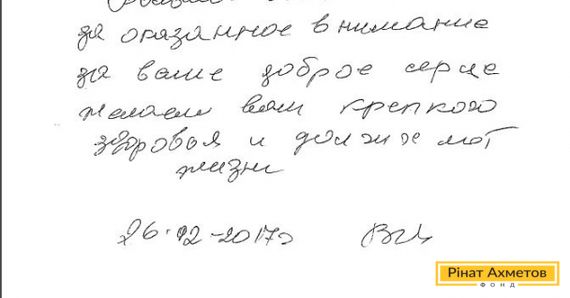 за оказанное внимание
за ваше доброе серце
желаем вам крепкого
здоровья и долгих лет
жизни
26.12-2017г
Рінат Ахметов
ФОНД